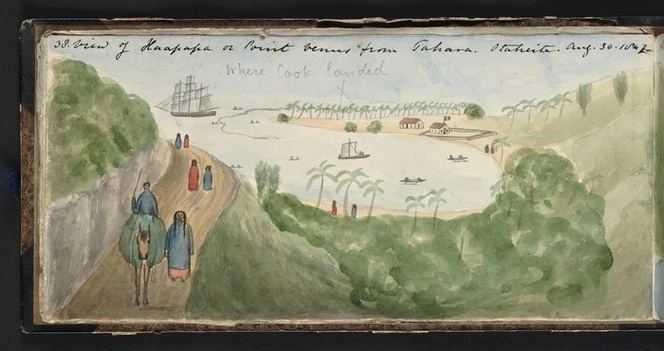 38. View of Haapapa or Point Venus from Tahara. Otaheite. Aug. 30.
Where Cook landed